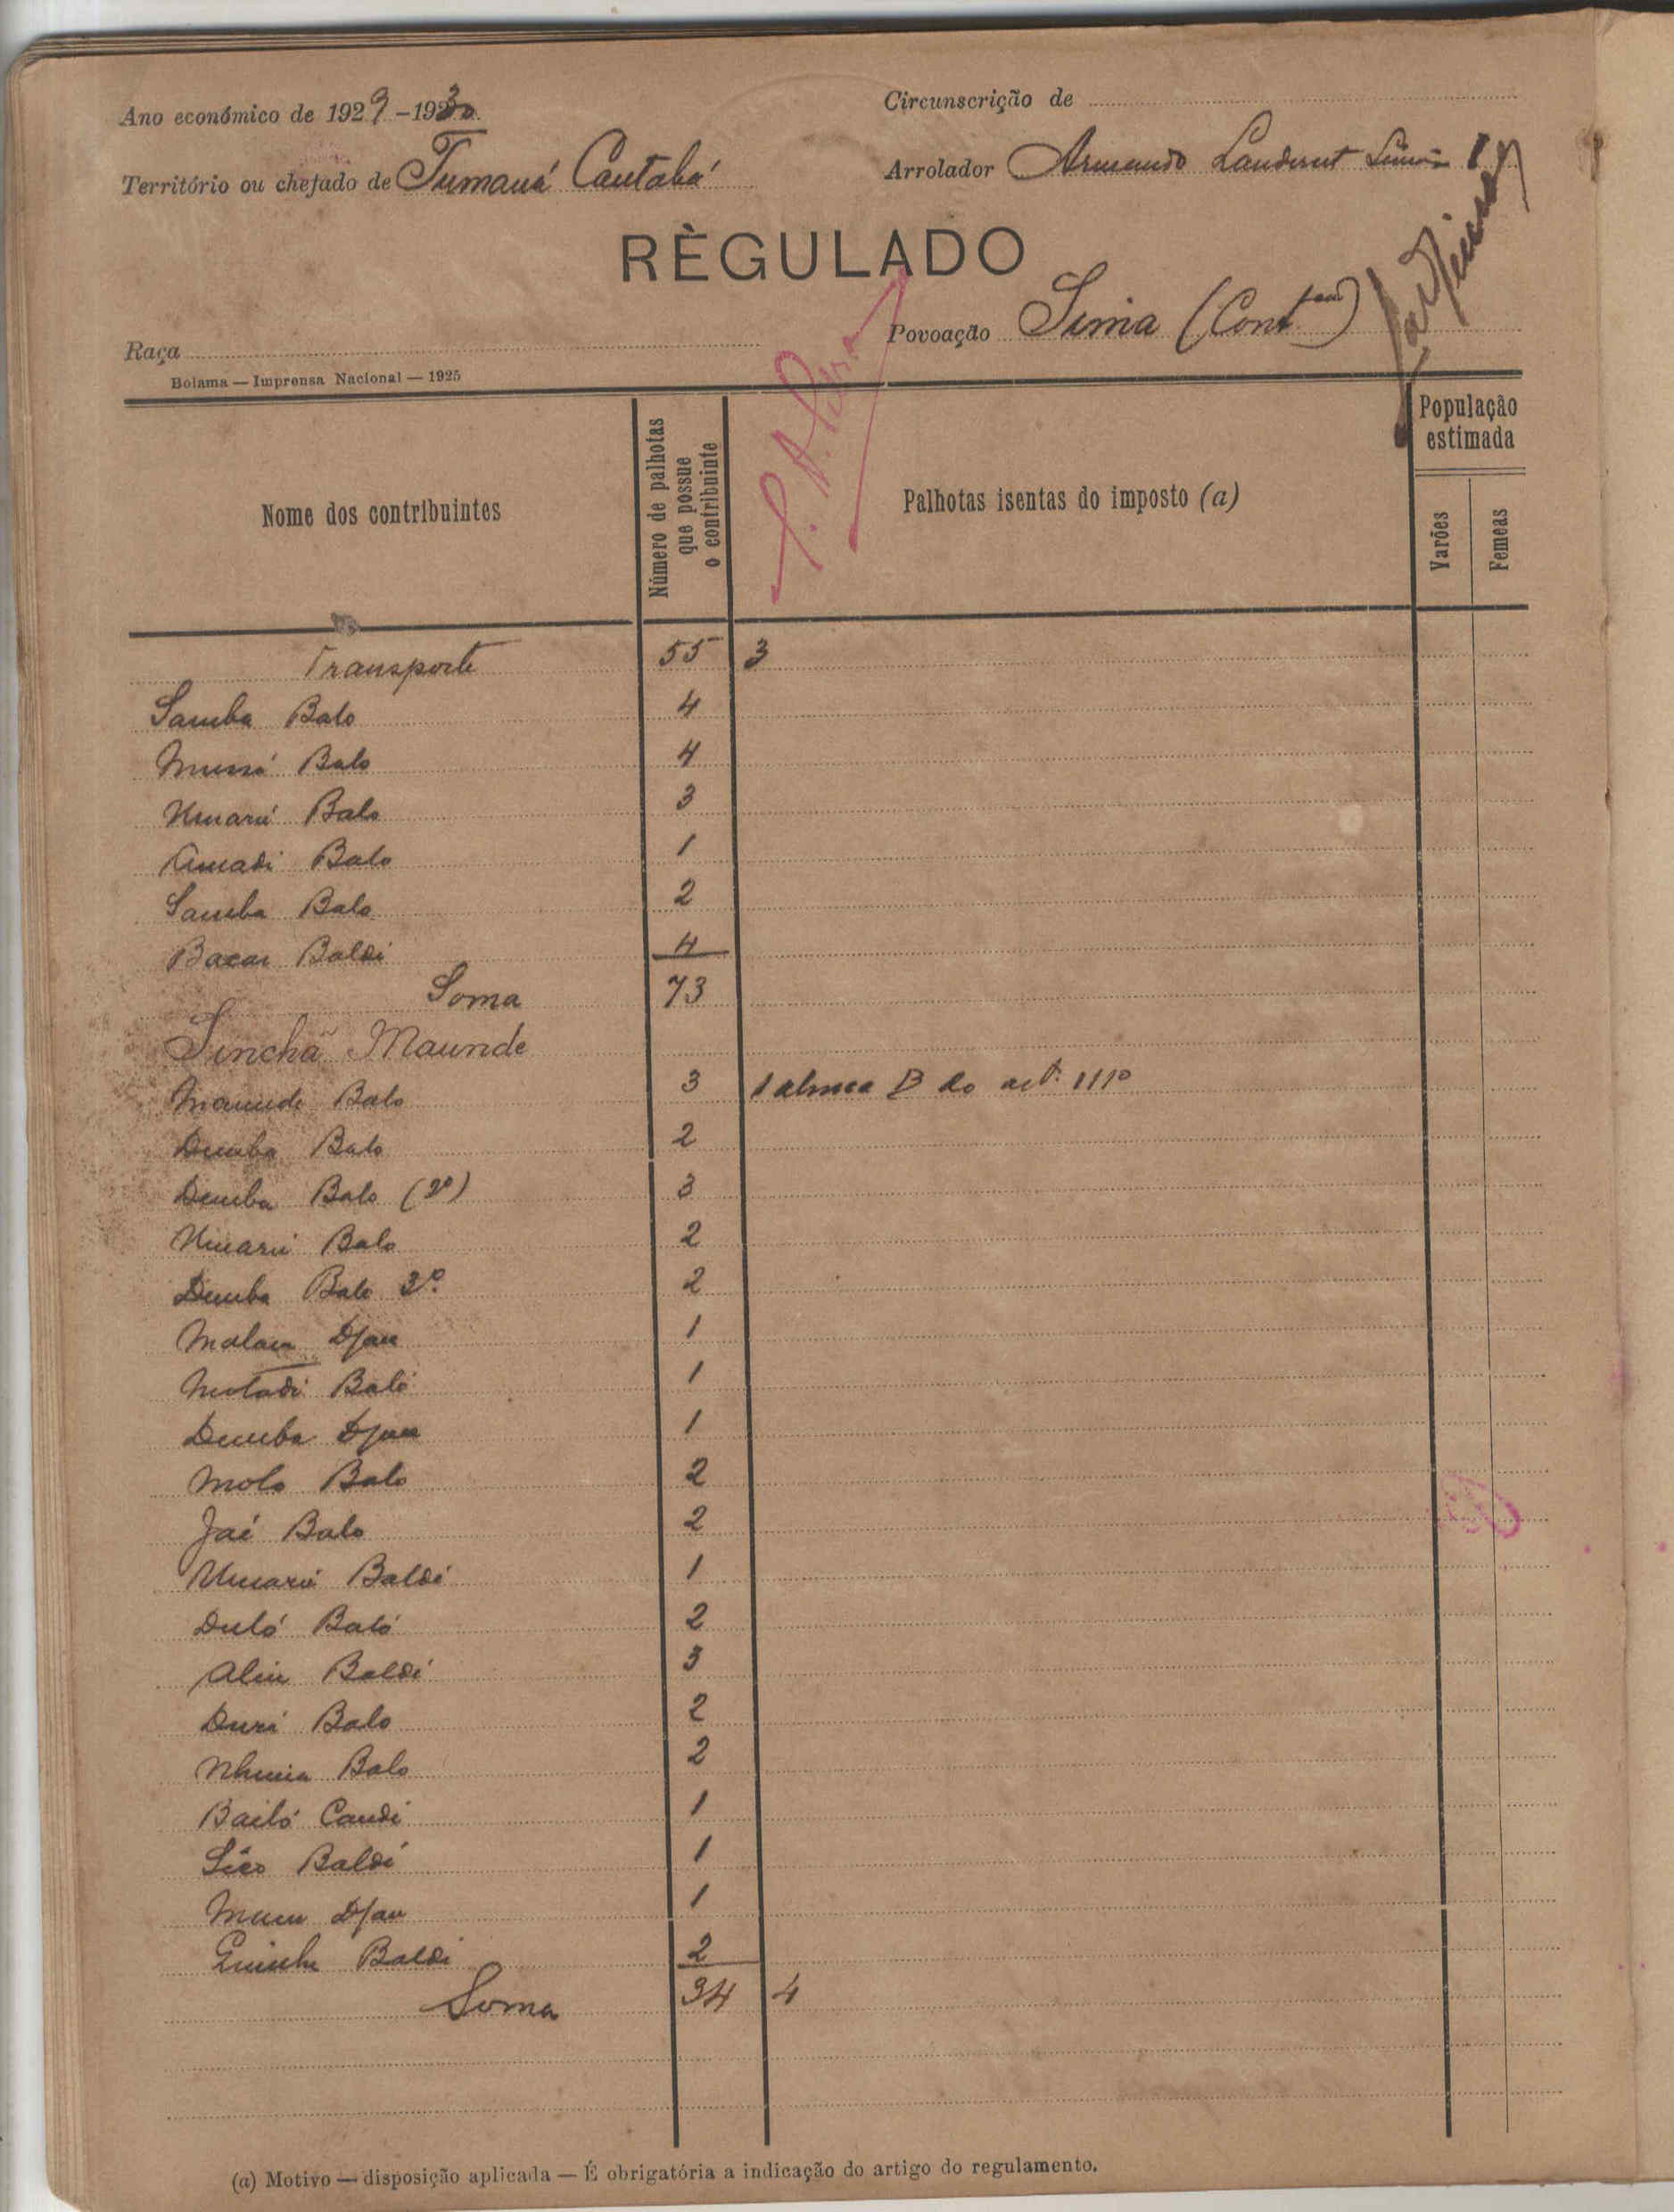 Ano económico de 1929-1930
Circunscrição de
Território ou chefado de Tumaná Cantabá
Arrolador Armando Landerset Simões
RÈGULADO
Povoação Simia (Cont)
Raça
Bolama — Imprensa Nacional — 1925
Nome dos contribuintes
Número de palhotas que possue o contribuinte
Palhotas isentas do imposto (a)
População estimada
Varões
Femeas
Transporte 55 3
Samba Balo 4
Mussá Balo 4
Umarú Balo 3
Amadi Balo 1
Samba Balo 2
Bacar Baldi 4
Soma 73
Sinchã Maunde
Maunde Balo 3 1 alinea B do art. 111º
Demba Balo 2
Demba Balo (2º) 3
Umarú Balo 2
Demba Balo 3º 2
Malam Djau 1
Motadi Baló 1
Demba Djau 1
Molo Balo 2
Jaé Balo 2
Umarú Baldé 1
Duló Baló 2
Aliu Baldé 3
Duri Balo 2
Balo 2
Bailó Candé 1
Sico Baldé 1
Djau 1
Baldé 2
Soma 34 4
(a) Motivo — disposição aplicada — É obrigatória a indicação do artigo do regulamento.